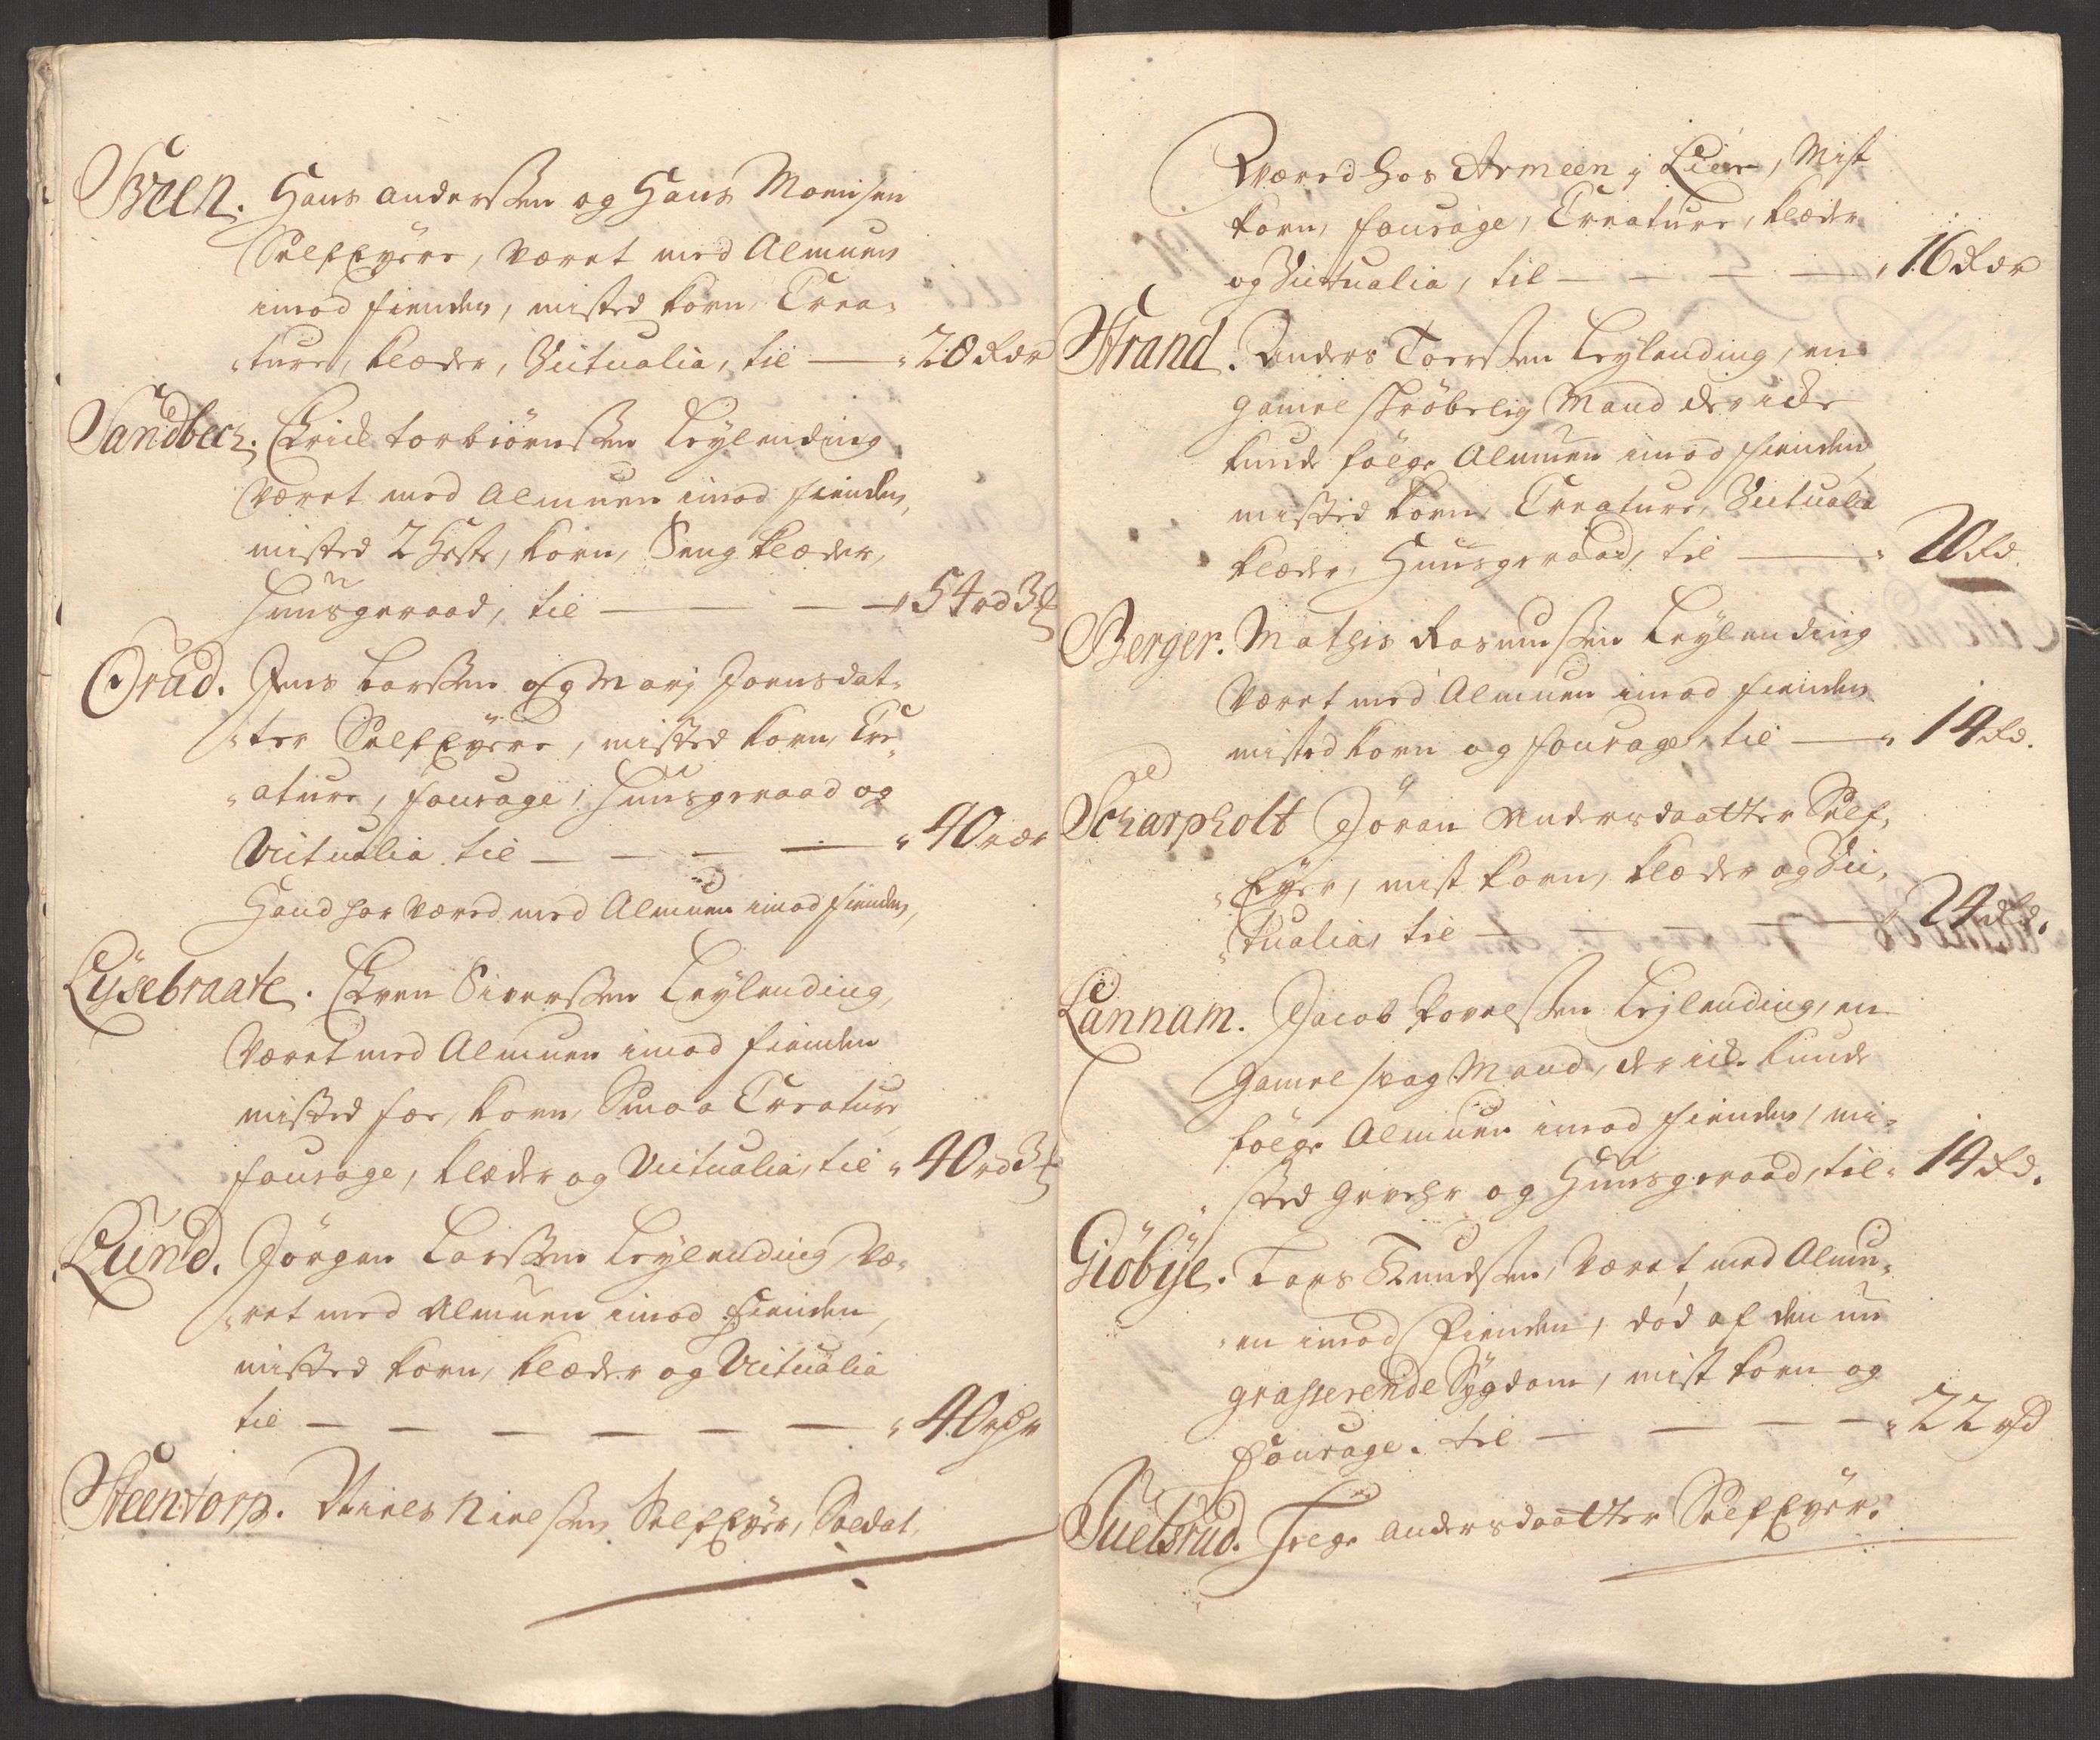 Breen. Hans Anderssen og Hans Monsen
SelfEyere, været med Almuen
imod fienden, misted korn, Crea-
ture, klæder, Victualia, til — 20 Rdr
Sandbech. Erick torbiörnssen Leylending
været med Almuen imod fienden,
misted 2 Heste, korn, Seng klæder,
huusgeraad, til — — — 54 rd 3 ¶
Orud. Jens Larssen og Marj Joensdat-
ter SelfEyere, misted korn, Cre-
ature, fourage, huusgeraad og
Victualia til — — — — 40 rdr
Hand har værred med Almuen imod fienden,
Lysebraate. Even Siverssen Leylending,
Været med Almuen imod fienden
misted fær, korn, Smaa Creature,
fourage, klæder og Victualia, til 40 rd 3 ¶
Lund. Jörgen Larssen Leylending, væ-
ret med Almuen imod fienden,
misted korn, klæder og Victualia
til — — — — — — 40 rdr
Steentorp. Niels Nielssen SelfEyer, Soldat,
Værred hos Armeen j Leir, Mist
korn, fourage, Creature, klæder
og Victualia, til — — — — 16 Rdr
Strand. Anders Toerssen Leylending, en
gamel skröbelig Mand der icke
kunde fölge Almuen imod fienden
misted korn, Creature, Victualia
klæder, Huusgeraad, til — 20 Rd.
Berger. Mathis Rasmussen Leylending
Været med Almuen imod fienden
misted korn og fourage, til — 14 Rd.
Scharpholt Jöran Andersdaatter Self-
Eyer, mist korn, klæder og Vic-
tualia, til — — — — 24 Rd.
Lannam. Jacob Povelssen Leylending, en
gamel svag Mand, der icke kunde
fölge Almuen imod fienden, mi-
sted gevehr og Huusgeraad, til 14 Rd.
Giöbÿe. Lars Knudssen, Været med Almu-
en imod fienden, död af den nu
grasserende Sygdom, mist korn og
fourage. til — — — — 22 Rd
Suelsrud. Helge Andersdaatter SelfEyer.